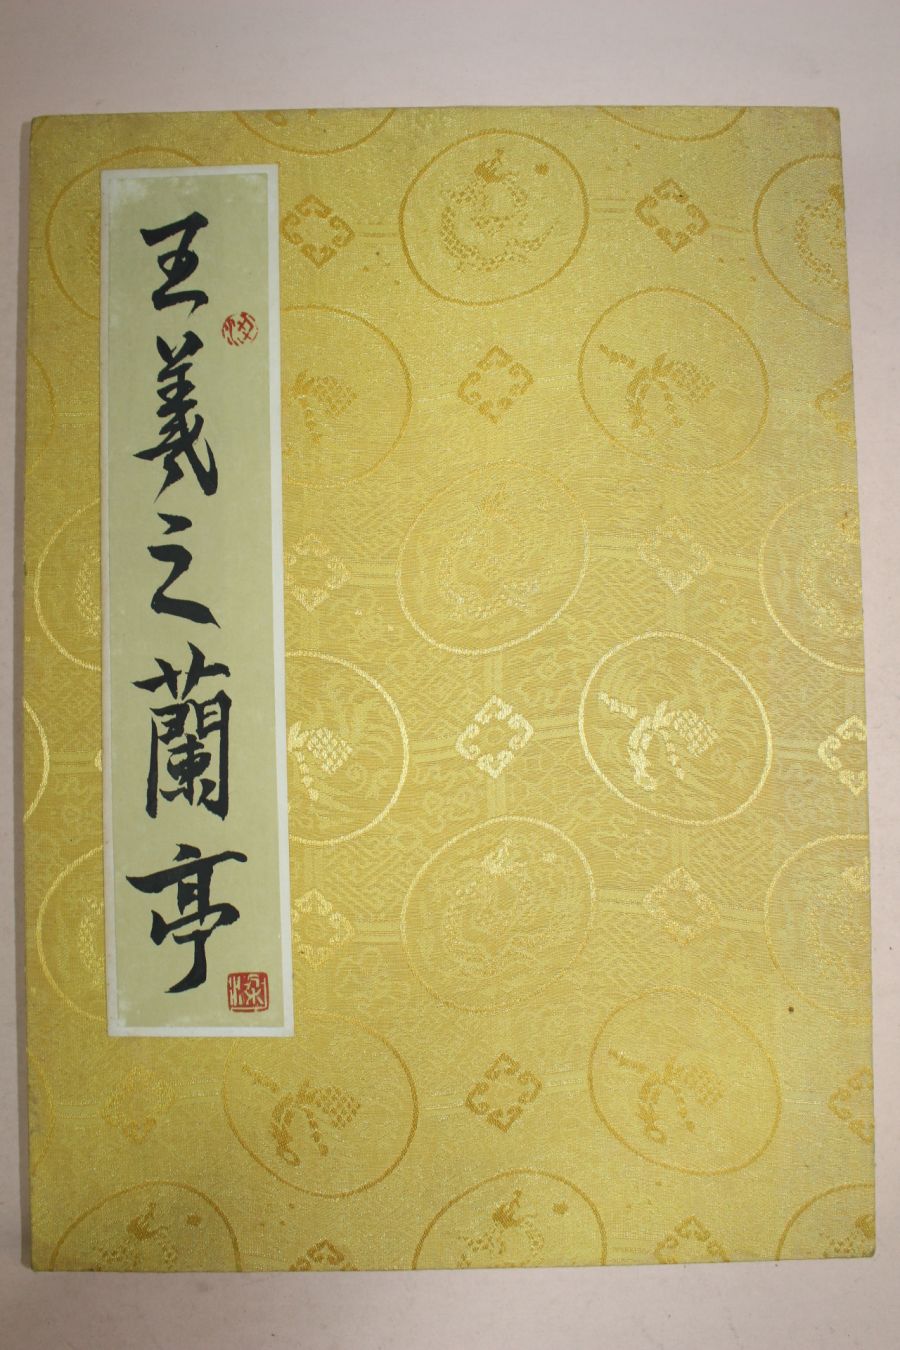 王羲之蘭亭